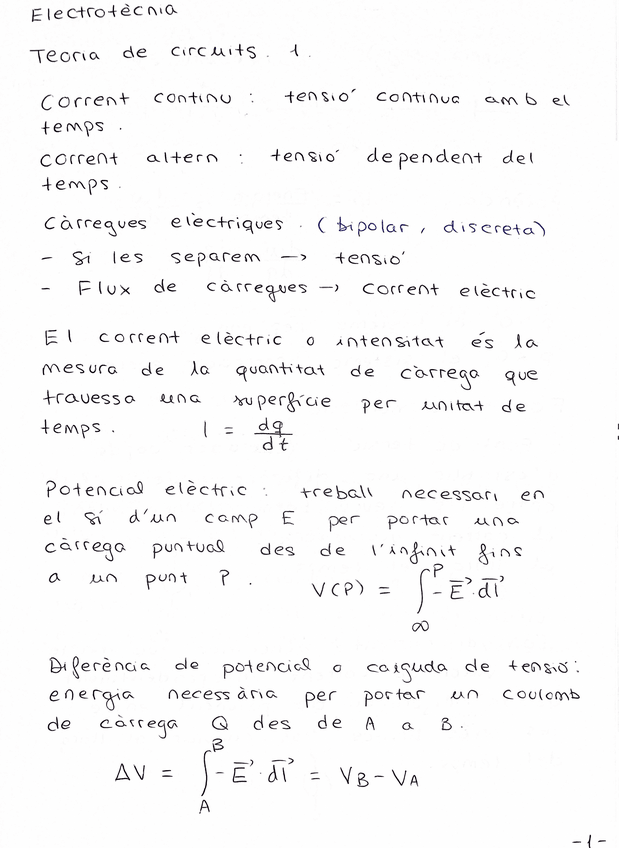 Electrotècnia
Teoria de circuits. 1.
Corrent continu : tensió continua amb el
temps.
Corrent altern : tensió dependent del
temps.
Càrregues elèctriques. (bipolar, discreta)
- Si les separem -> tensió
- Flux de càrregues -> corrent elèctric
El corrent elèctric o intensitat és la
mesura de la quantitat de càrrega que
travessa una superfície per unitat de
temps. I = dq/dt
Potencial elèctric : treball necessari en
el sí d'un camp E per portar una
càrrega puntual des de l'infinit fins
a un punt P. V(P) = ∫_∞^P -E⃗·dl⃗
Diferència de potencial o caiguda de tensió:
energia necessària per portar un coulomb
de càrrega Q des de A a B.
ΔV = ∫_A^B -E⃗·dl⃗ = V_B - V_A
-1-